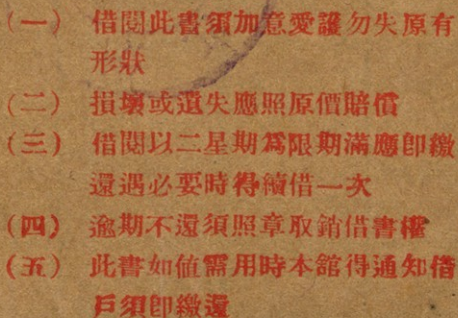 (一) 借閱此書須加意愛護勿失原有
形狀
(二) 損壞或遺失應照原價賠償
(三) 借閱以二星期為限期滿應即繳
還遇必要時得續借一次
(四) 逾期不還須照章取銷借書權
(五) 此書如值需用時本館得通知借
戶須即繳還